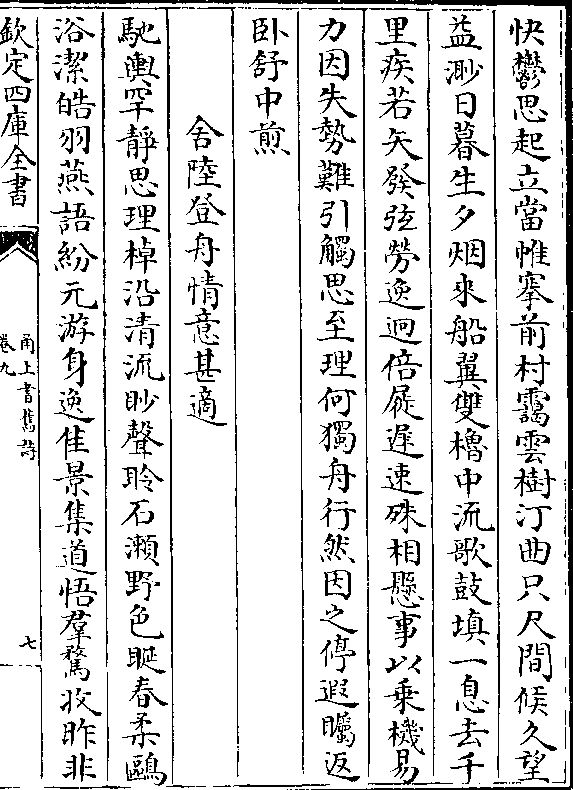 快鬱思起立當帷搴前村靄雲樹汀曲只尺間候久望
益渺日暮生夕烟來船翼雙櫓中流歌鼓填一息去千
里疾若矢發弦勞逸迥倍屣遲速殊相懸事以乗機易
力因失勢難引觸思至理何獨舟行然因之停遐矚返
卧舒中煎
舍陸登舟情意甚適
馳輿罕靜思理棹沿清流眇聲聆石瀨野色睇春柔鷗
浴潔皓羽燕語紛元游身逸佳景集道悟羣騖收昨非
欽定四庫全書
甬上耆舊詩
卷九
七